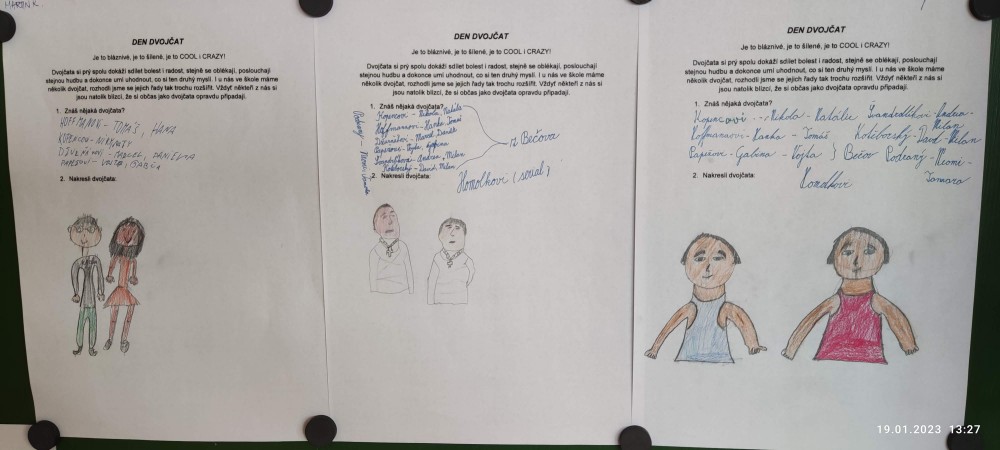 MARTIN K.
DEN DVOJČAT
Je to bláznivé, je to šílené, je to COOL i CRAZY!
Dvojčata si prý spolu dokáží sdílet bolest i radost, stejně se oblékají, poslouchají
stejnou hudbu a dokonce umí uhodnout, co si ten druhý myslí. I u nás ve škole máme
několik dvojčat, rozhodli jsme se jejich řady tak trochu rozšířit. Vždyť někteří z nás si
jsou natolik blízcí, že si občas jako dvojčata opravdu připadají.
1. Znáš nějaká dvojčata?
HOFFMANOVI - TOMÁŠ, HANA
2. Nakresli dvojčata:
DEN DVOJČAT
Je to bláznivé, je to šílené, je to COOL i CRAZY!
Dvojčata si prý spolu dokáží sdílet bolest i radost, stejně se oblékají, poslouchají
stejnou hudbu a dokonce umí uhodnout, co si ten druhý myslí. I u nás ve škole máme
několik dvojčat, rozhodli jsme se jejich řady tak trochu rozšířit. Vždyť někteří z nás si
jsou natolik blízcí, že si občas jako dvojčata opravdu připadají.
1. Znáš nějaká dvojčata?
Kopencovi - Nikola, Natália
Hoffmannovi - Hanka Tomáš
z Bečova
Andrea, Milan
David, Milan
2. Nakresli dvojčata:
Homolkovi (seriál)
DEN DVOJČAT
Je to bláznivé, je to šílené, je to COOL i CRAZY!
Dvojčata si prý spolu dokáží sdílet bolest i radost, stejně se oblékají, poslouchají
stejnou hudbu a dokonce umí uhodnout, co si ten druhý myslí. I u nás ve škole máme
několik dvojčat, rozhodli jsme se jejich řady tak trochu rozšířit. Vždyť někteří z nás si
jsou natolik blízcí, že si občas jako dvojčata opravdu připadají.
1. Znáš nějaká dvojčata?
Kopencovi - Nikola - Natálie Andrea - Milan
Hoffmanovi - Hanka - Tomáš David - Milan
Gabina - Vojta } Bečov Noemi -
2. Nakresli dvojčata: Homolkovi Tamara
19.01.2023 13:27